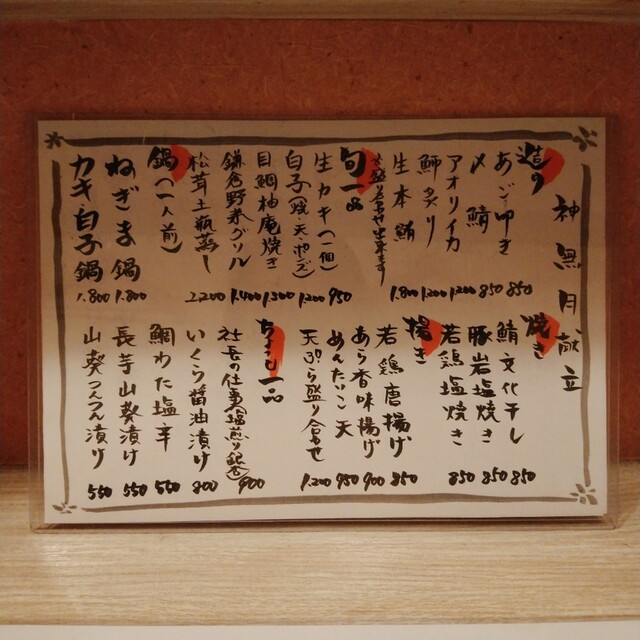 神無月献立
造り
あご叩き 850
〆鯖 850
アオリイカ 1.200
鰤炙り 1.200
生本鮪 1.800
旬一品
生カキ(一個) 950
白子(焼・天・ポンズ) 1.200
目鯛柚庵焼き 1.300
鎌倉野菜グリル 1.400
松茸土瓶蒸し 2.200
鍋(一人前)
ねぎま鍋 1.800
カキ・白子鍋 1.800
焼き
鯖文化干し 850
豚岩塩焼き 850
若鶏塩焼き 850
揚き
若鶏唐揚げ 850
あら香味揚げ 900
めんたいこ天 950
天ぷら盛り合わせ 1.200
ちょこっと一品
社長の仕事(塩煎り銀杏) 900
いくら醤油漬け 800
鯛わた塩辛 550
長芋山葵漬け 550
山葵つんつん漬け 550